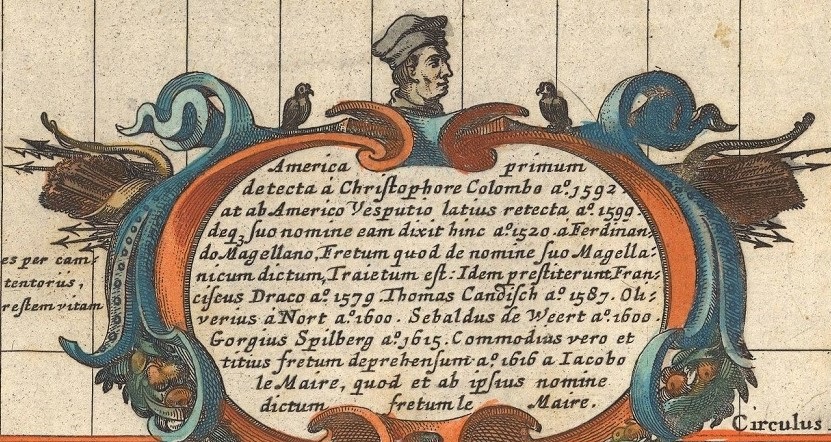 America primum
detecta á Christophore Colombo aº. 1592.
at ab Americo Vesputio latius retecta aº. 1599.
deqꝫ suo nomine eam dixit hinc aº. 1520. a Ferdinan,
do Magellano, Fretum quod de nomine suo Magella-
nicum dictum, Traietum est: Idem prestiterunt Fran,
ciscus Draco aº. 1579. Thomas Candisch aº. 1587. Oli-
verius á Nort aº. 1600. Sebaldus de Weert aº. 1600.
Gorgius Spilberg aº. 1615. Commodius vero et
titius fretum deprehensum aº. 1616 a Iacobo
le Maire, quod et ab ipsius nomine
dictum fretum le Maire.
es per cam:
tentorijs,
restem vitam
Circulus